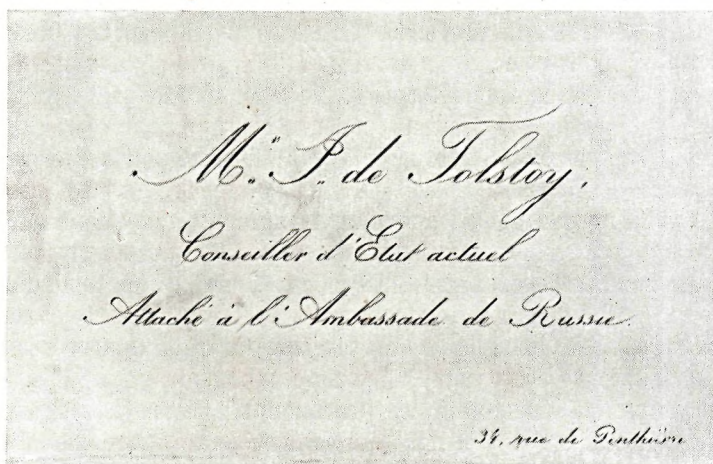 Mr. J. de Tolstoy,
Conseiller d'Etat actuel
Attaché à l'Ambassade de Russie.
34, rue de Penthièvre